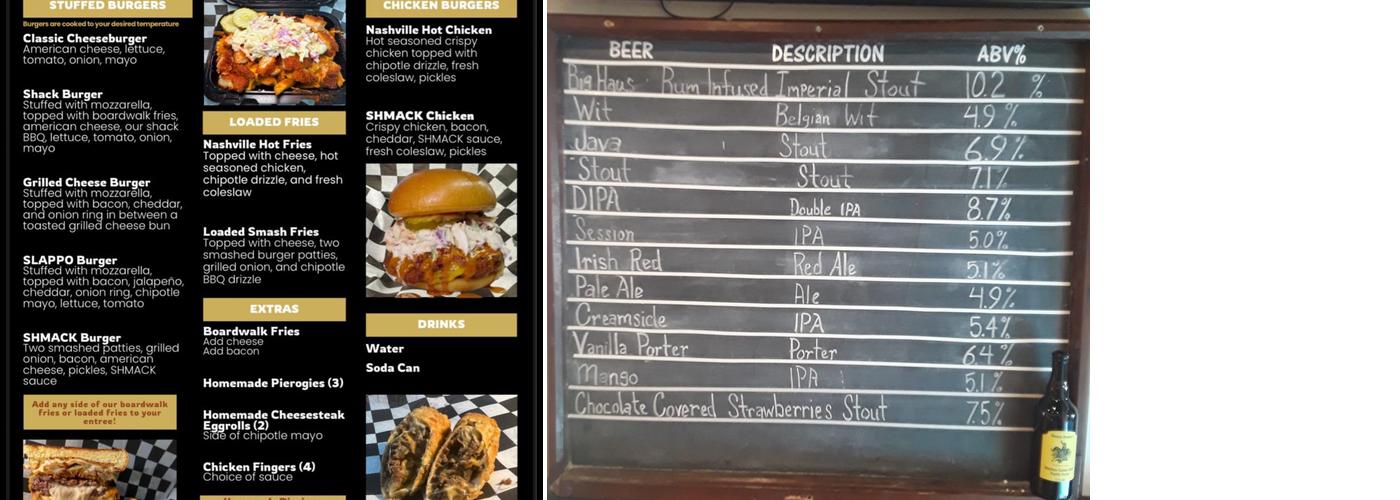 STUFFED BURGERS
Burgers are cooked to your desired temperature
Classic Cheeseburger
American cheese, lettuce,
tomato, onion, mayo
Shack Burger
Stuffed with mozzarella,
topped with boardwalk fries,
american cheese, our shack
BBQ, lettuce, tomato, onion,
mayo
Grilled Cheese Burger
Stuffed with mozzarella,
topped with bacon, cheddar,
and onion ring in between a
toasted grilled cheese bun
SLAPPO Burger
Stuffed with mozzarella,
topped with bacon, jalapeño,
cheddar, onion ring, chipotle
mayo, lettuce, tomato
SHMACK Burger
Two smashed patties, grilled
onion, bacon, american
cheese, pickles, SHMACK
sauce
Add any side of our boardwalk
fries or loaded fries to your
entree!
LOADED FRIES
Nashville Hot Fries
Topped with cheese, hot
seasoned chicken,
chipotle drizzle, and fresh
coleslaw
Loaded Smash Fries
Topped with cheese, two
smashed burger patties,
grilled onion, and chipotle
BBQ drizzle
EXTRAS
Boardwalk Fries
Add cheese
Add bacon
Homemade Pierogies (3)
Homemade Cheesesteak
Eggrolls (2)
Side of chipotle mayo
Chicken Fingers (4)
Choice of sauce
CHICKEN BURGERS
Nashville Hot Chicken
Hot seasoned crispy
chicken topped with
chipotle drizzle, fresh
coleslaw, pickles
SHMACK Chicken
Crispy chicken, bacon,
cheddar, SHMACK sauce,
fresh coleslaw, pickles
DRINKS
Water
Soda Can
BEER DESCRIPTION ABV%
Big Haus Rum Infused Imperial Stout 10.2 %
Wit Belgian Wit 4.9%
Java Stout 6.9%
Stout Stout 7.1%
DIPA Double IPA 8.7%
Session IPA 5.0%
Irish Red Red Ale 5.1%
Pale Ale Ale 4.9%
Creamsicle IPA 5.4%
Vanilla Porter Porter 6.4%
Mango IPA 5.1%
Chocolate Covered Strawberries Stout 7.5%